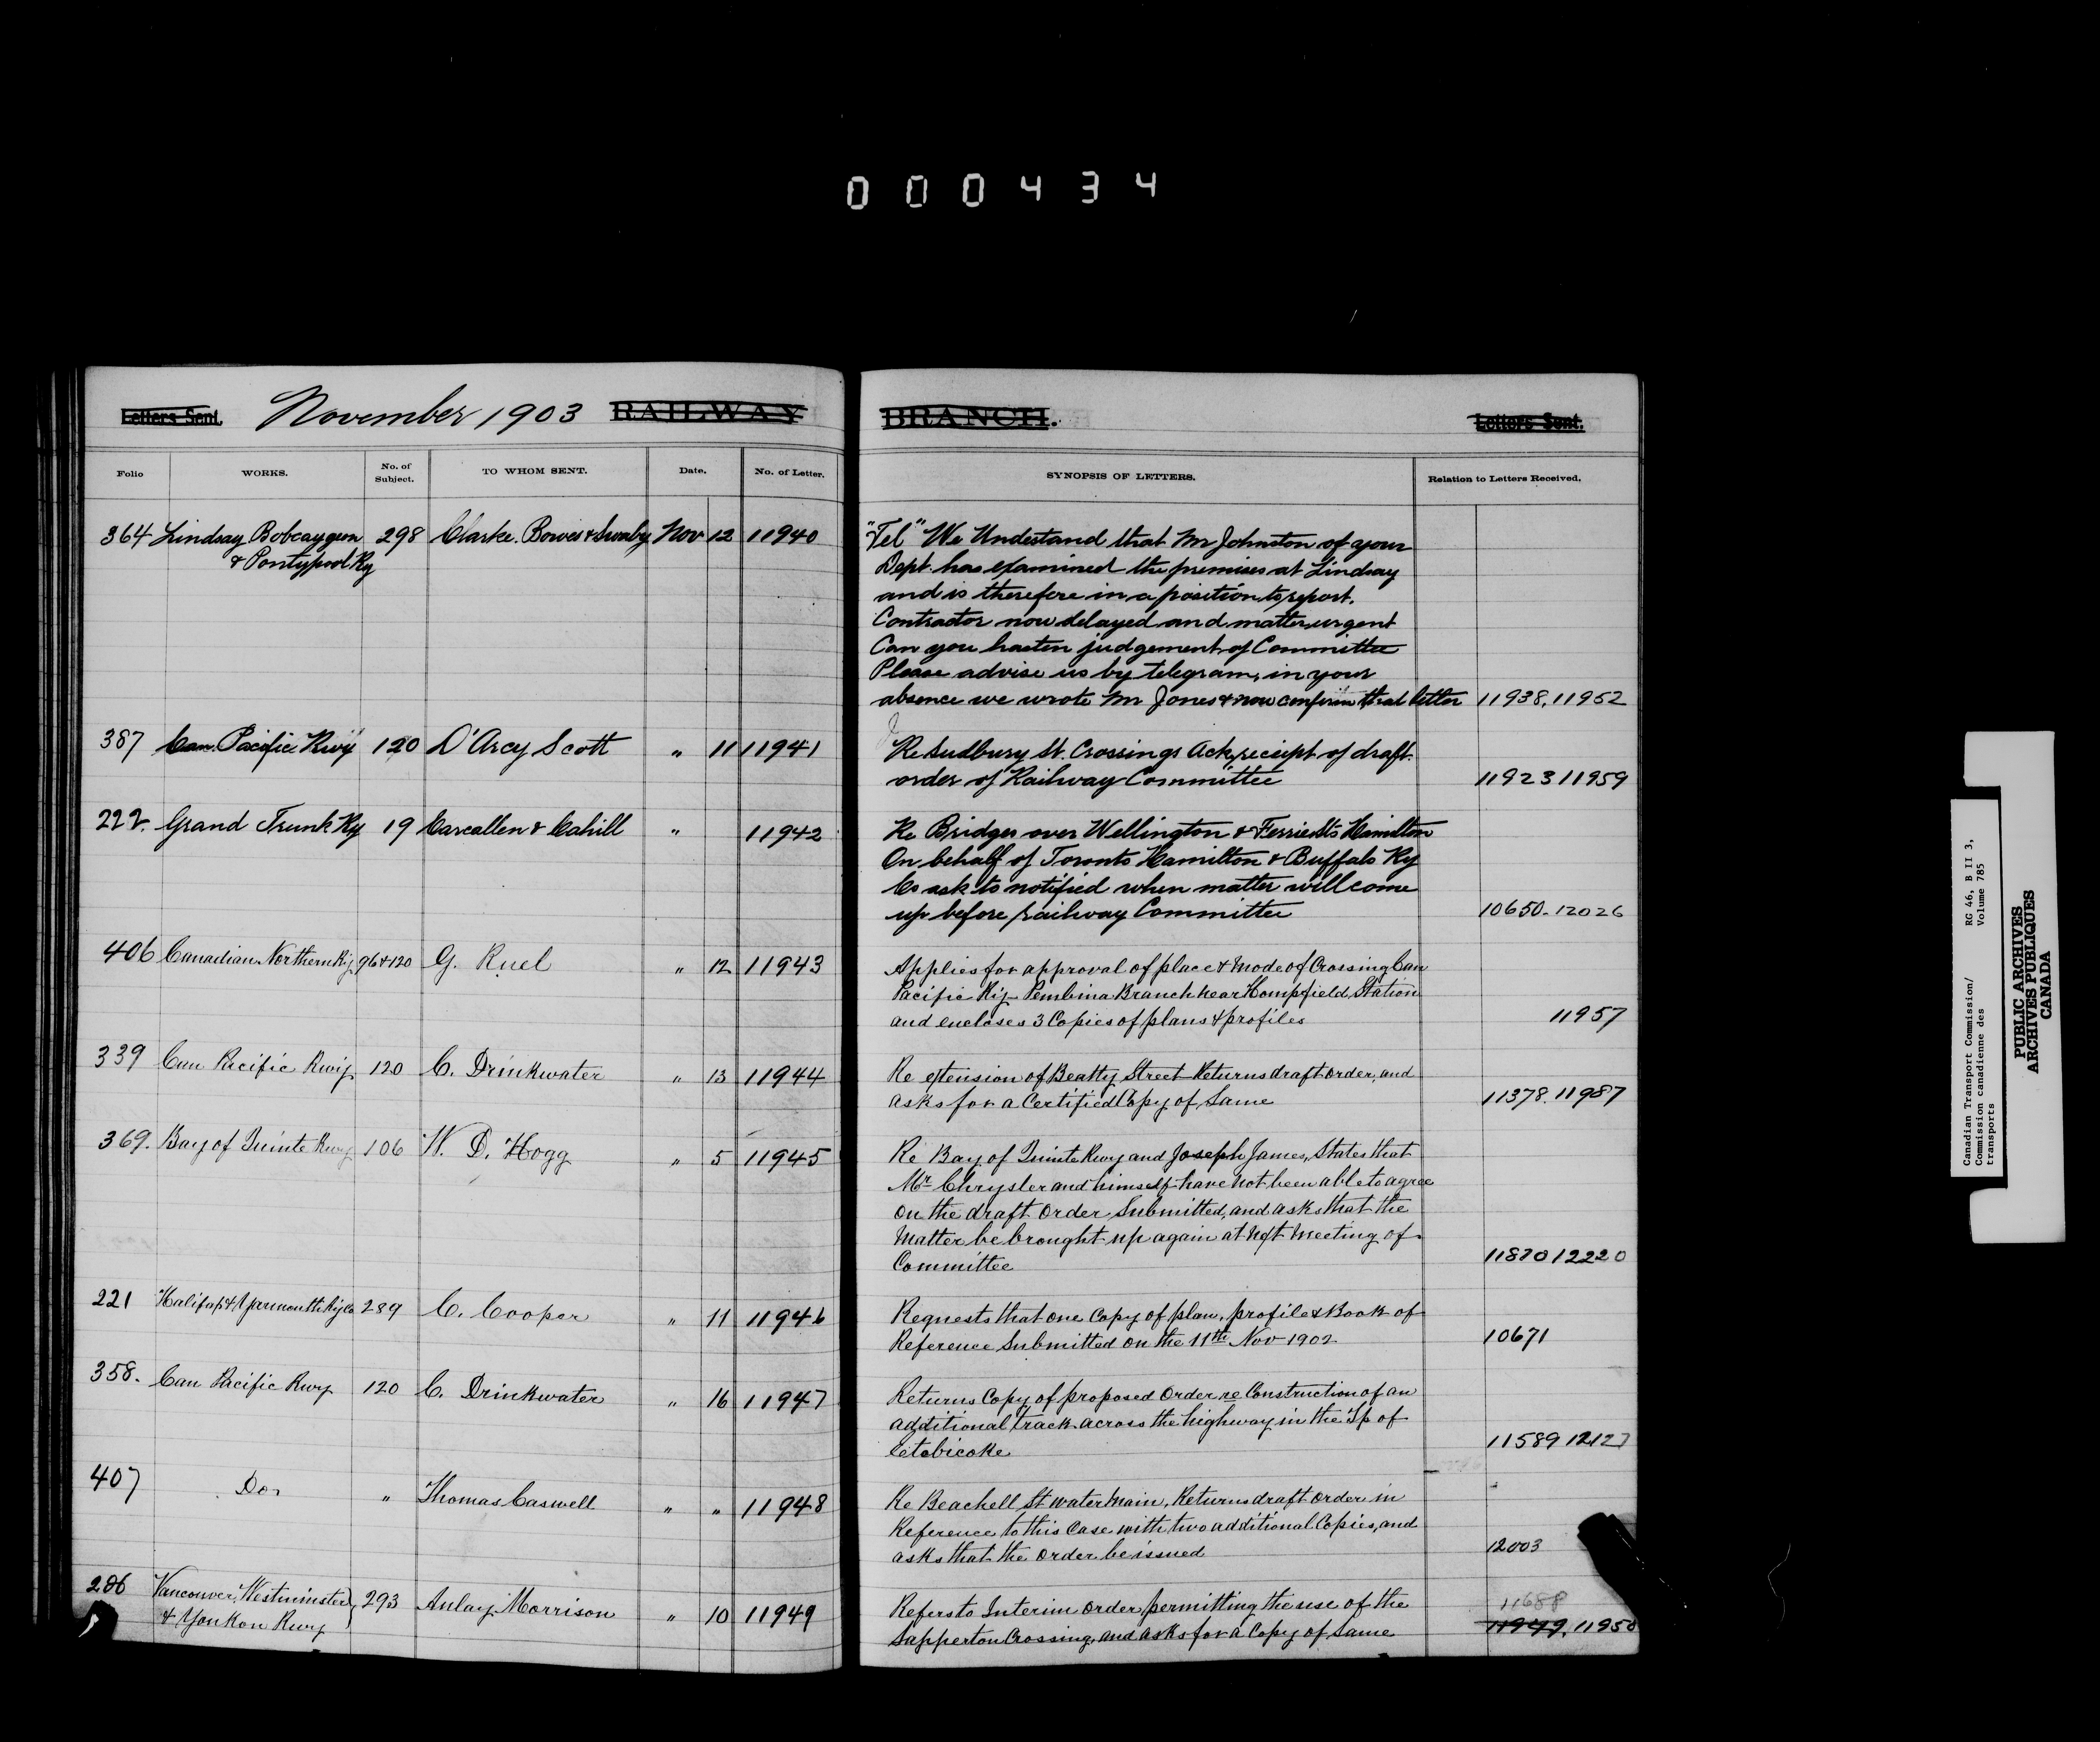 000434
Letters Sent. November 1903 RAILWAY BRANCH. Letters Sent.
Folio WORKS. No. of Subject. TO WHOM SENT. Date. No. of Letter. SYNOPSIS OF LETTERS. Relation to Letters Received.
364 Lindsay Bobcaygeon 298 Clarke. Bowes & Swaby Nov 12 11940 "Tel" We Undestand that Mr Johnston of your
& Pontypool Ry Dept. has examined the premises at Lindsay
and is therefore in a position to report.
Contractor now delayed and matter urgent
Can you hasten judgement of Committee
Please advise us by telegram, in your
absence we wrote Mr Jones & now confirm that letter 11938, 11952
387 Can. Pacific Rwy 120 D'Arcy Scott " 11 11941 Re Sudbury St. Crossings Ack receipt of draft
order of Railway Committee 11923 11959
222. Grand Trunk Ry 19 Carscallen & Cahill " 11942 Re Bridges over Wellington & Ferrie Sts Hamilton
On behalf of Toronto Hamilton & Buffalo Ry
Co ask to notified when matter will come
up before railway Committee 10650-12026
406 Canadian Northern Ry 96&120 G. Ruel " 12 11943 Applies for approval of place & mode of Crossing Can
Pacific Ry Pembina Branch near Hompfield Station
and encloses 3 Copies of plans & profiles 11957
339 Can Pacific Rwy 120 C. Drinkwater " 13 11944 Re extension of Beatty Street Returns draft order, and
asks for a Certified Copy of Same 11378. 11987
369. Bay of Quinte Rwy 106 W. D. Hogg " 5 11945 Re Bay of Quinte Rwy and Joseph James, States that
Mr Chrysler and himself have not been able to agree
on the draft Order Submitted, and asks that the
Matter be brought up again at next Meeting of
Committee 11870 12220
221 Halifax & Yarmouth Ry Co 289 C. Cooper " 11 11946 Requests that one Copy of plan, profile & Book of
Reference Submitted on the 11th Nov 1902 10671
358. Can Pacific Rwy 120 C. Drinkwater " 16 11947 Returns Copy of proposed Order re Construction of an
additional track across the highway in the Tp of
Etobicoke 11589 12127
407 Do. " Thomas Caswell " " 11948 Re Beachell St water Main, Returns draft Order in
Reference to this Case with two additional Copies, and
asks that the Order be issued 12003
286 Vancouver, Westminster 293 Aulay Morrison " 10 11949 Refers to Interim Order permitting the use of the 11688
& Yonkon Rwy Sapperton Crossing, and asks for a Copy of Same 11949, 11950
Canadian Transport Commission/ RG 46, B II 3,
Commission canadienne des Volume 785
transports
PUBLIC ARCHIVES
ARCHIVES PUBLIQUES
CANADA